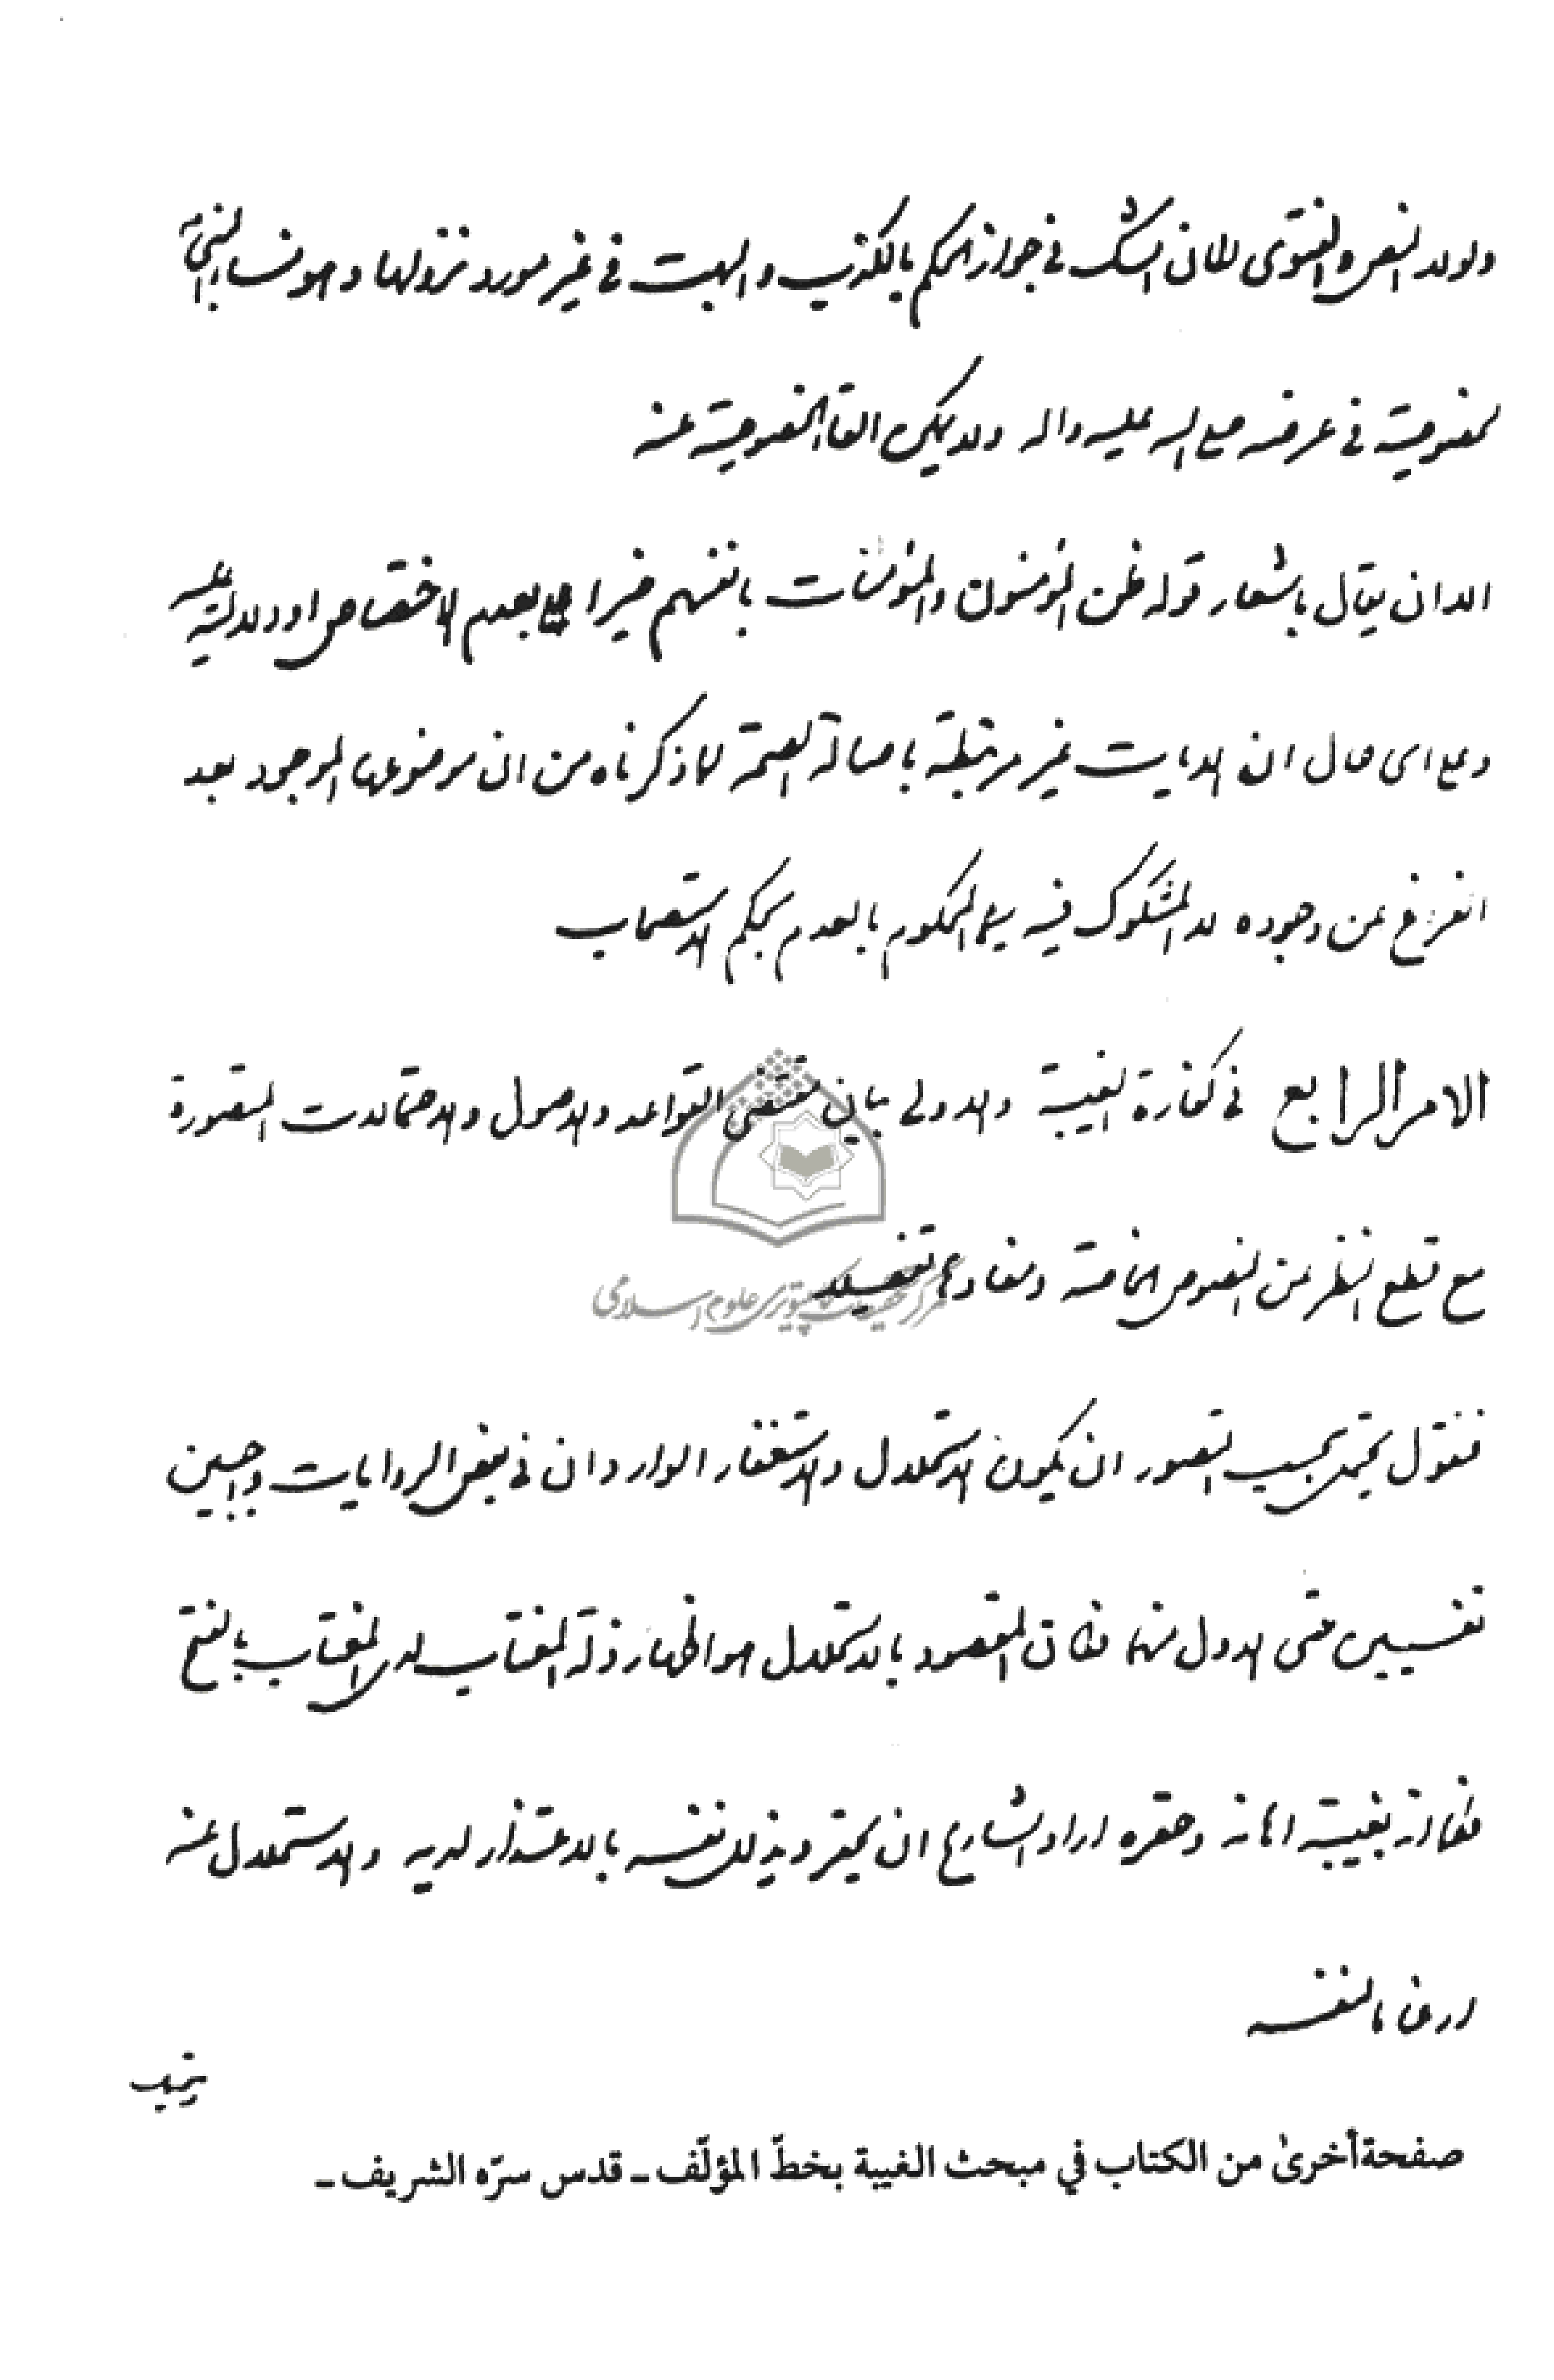 ولولا النص والفتوى لكان الشك في جواز الحكم بالكذب والبهت في غير مورد نزولها وهو نساء النبي
لخصوصية في عرضه صلى الله عليه واله ولا يمكن القاء الخصوصية عنه
الا ان يقال باشعار قوله ظن المؤمنون والمؤمنات بانفسهم خيرا بعدم الاختصاص او دلالته عليه
وعلى اى حال ان الايات غير مرتبطة باصالة الصحة لما ذكرناه من ان موضوعها الموجود بعد
الفراغ عن وجوده لا المشكوك فيه سيما المحكوم بالعدم بحكم الاستصحاب
الامر الرابع في كفارة الغيبة والاولى بيان مقتضى القواعد والاصول والاحتمالات المتصورة
مع قطع النظر عن النصوص الخاصة ومفادها تفصيلا
مركز تحقيقات كامپيوترى علوم اسلامى
فنقول يحتمل بحسب التصور ان يكون الاستحلال والاستغفار الواردان في بعض الروايات واجبين
نفسيين حتى الاول منهما فكان المقصود بالاستحلال هو اظهار ذلة المغتاب لدى المغتاب بالفتح
فكما انه بغيبته اهانه وحقره اراد الشارع ان يحقر ويذلل نفسه بالاعتذار لديه والاستحلال عنه
ارغاما لنفسه
يحتمل
صفحة أخرىٰ من الكتاب في مبحث الغيبة بخطّ المؤلّف ـ قدس سرّه الشريف ـ